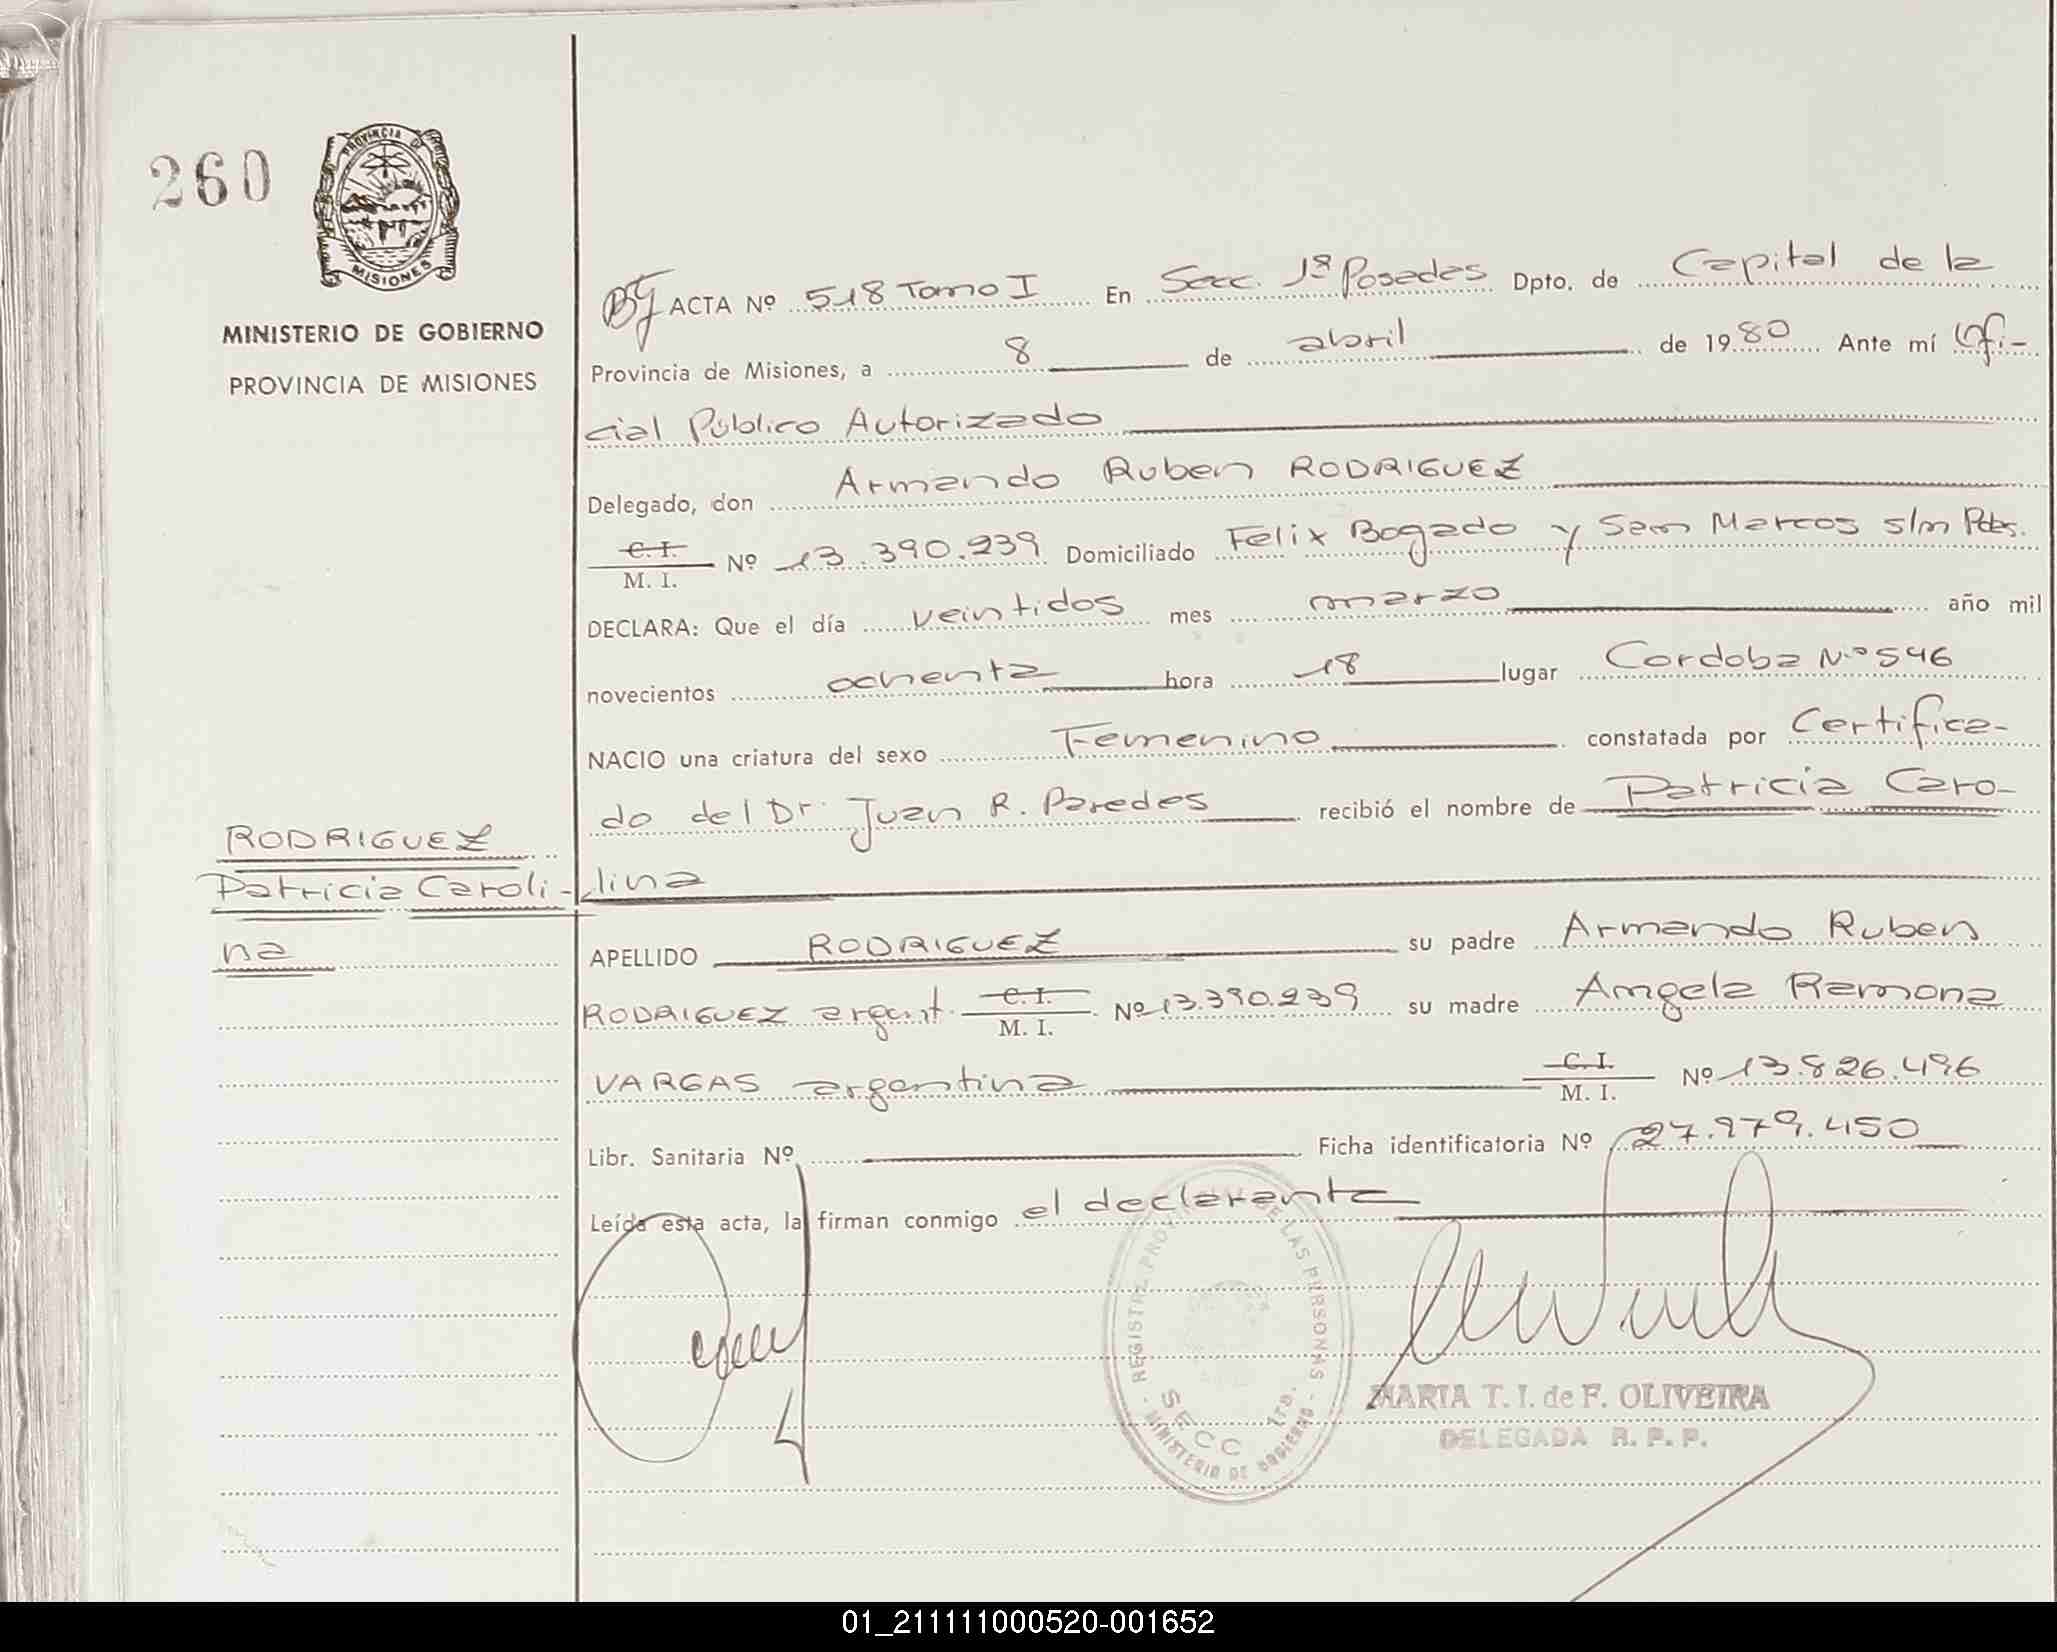 260
PROVINCIA DE
MISIONES
MINISTERIO DE GOBIERNO
PROVINCIA DE MISIONES
ACTA Nº 518 Tomo I En Secc. 1ª Posadas Dpto. de Capital de la
Provincia de Misiones, a 8 de abril de 1980 Ante mí Ofi-
cial Público Autorizado
Delegado, don Armando Ruben RODRIGUEZ
C. I.
M. I. Nº 13.390.239 Domiciliado Felix Bogado y San Marcos s/n Pdas.
DECLARA: Que el día veintidos mes marzo año mil
novecientos ochenta hora 18 lugar Cordoba Nº 546
NACIO una criatura del sexo Femenino constatada por Certifica-
do del Dr. Juan R. Paredes recibió el nombre de Patricia Caro-
lina
RODRIGUEZ
Patricia Caroli-
na
APELLIDO RODRIGUEZ su padre Armando Ruben
RODRIGUEZ argent. C. I.
M. I. Nº 13.390.239 su madre Angela Ramona
VARGAS argentina C. I.
M. I. Nº 13.826.496
Libr. Sanitaria Nº Ficha identificatoria Nº 27.979.450
Leída esta acta, la firman conmigo el declarante
REGISTRO PROV DE LAS PERSONAS
SECC 1ra.
MINISTERIO DE GOBIERNO
MARIA T. I. de F. OLIVEIRA
DELEGADA R. P. P.
01_211111000520-001652